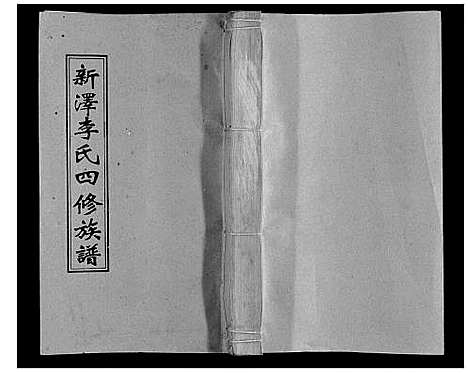 新澤李氏四修族譜